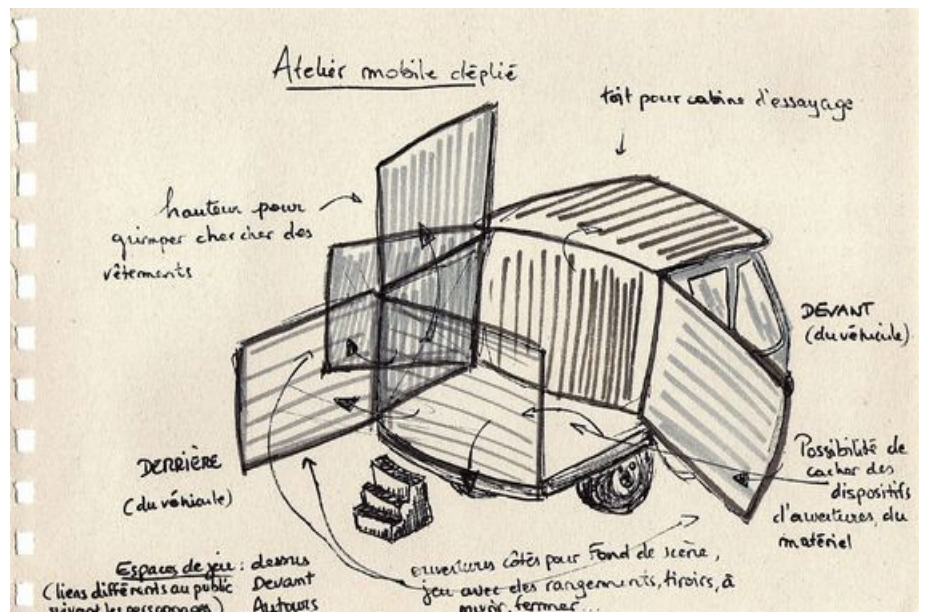 Atelier mobile déplié
toit pour cabine d'essayage
hauteur pour
grimper chercher des
vêtements
DEVANT
(du véhicule)
DERRIÈRE
(du véhicule)
Possibilité de
cacher des
dispositifs
d'ouvertures, du
matériel
Espaces de jeu : dessus
(liens différents au public Devant
suivant les personnages) Autours
ouvertures côtés pour Fond de scène,
jeu avec des rangements, tiroirs, à
ouvrir, fermer...